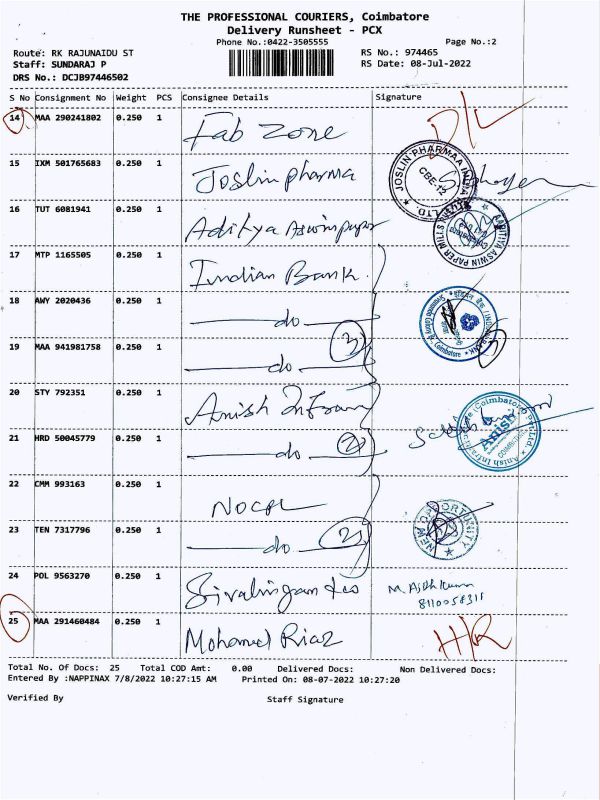 THE PROFESSIONAL COURIERS, Coimbatore
Delivery Runsheet - PCX
Phone No.:0422-3505555 Page No.:2
Route: RK RAJUNAIDU ST RS No.: 974465
Staff: SUNDARAJ P RS Date: 08-Jul-2022
DRS No.: DCJB97446502
S No Consignment No Weight PCS Consignee Details Signature
14 MAA 290241802 0.250 1 Fab Zone D/L
15 IXM 501765683 0.250 1 Joslin pharma JOSLIN PHARMAA INDIA LTD CBE-12
16 TUT 6081941 0.250 1 Aditya Aswinpaper ASWIN PAPER MILLS
17 MTP 1165505 0.250 1 Indian Bank
18 AWY 2020436 0.250 1 do Coimbatore
19 MAA 941981758 0.250 1 do 3 3
20 STY 792351 0.250 1 Anish Anish Infra (Coimbatore)
21 HRD 50045779 0.250 1 do 2
22 CMM 993163 0.250 1 NEW OPPORTUNITY
23 TEN 7317796 0.250 1 do 2
24 POL 9563270 0.250 1 Sivalingam M.
25 MAA 291460484 0.250 1 Mohamed Riaz H/R
Total No. Of Docs: 25 Total COD Amt: 0.00 Delivered Docs: Non Delivered Docs:
Entered By :NAPPINAX 7/8/2022 10:27:15 AM Printed On: 08-07-2022 10:27:20
Verified By Staff Signature